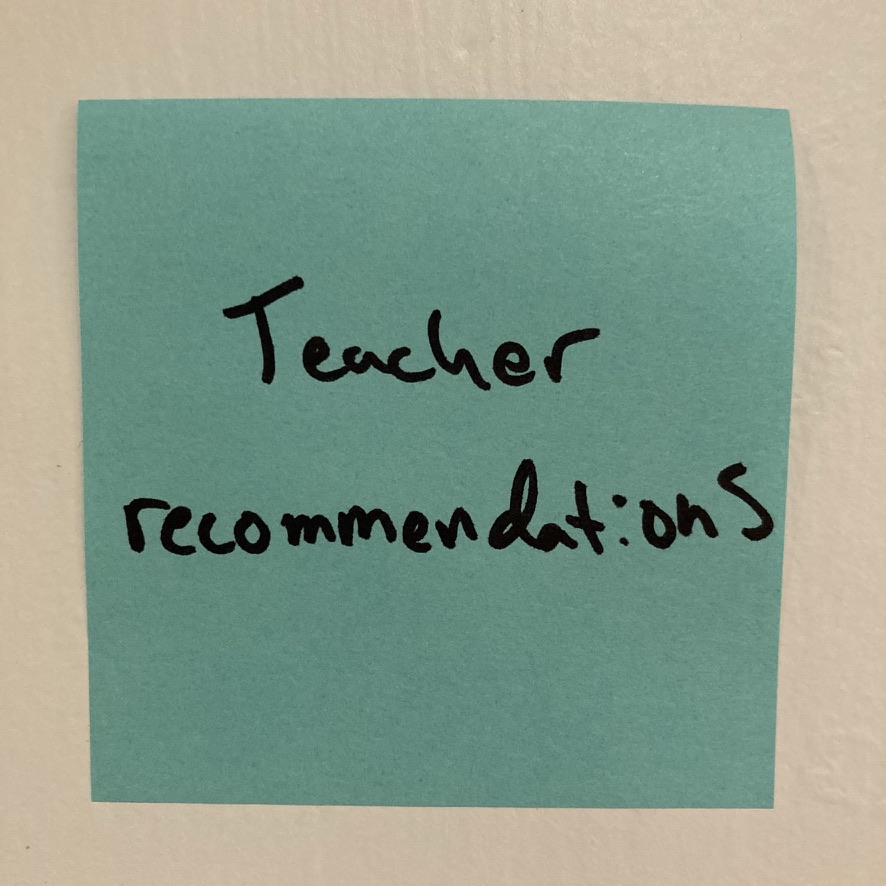 Teacher
recommendations